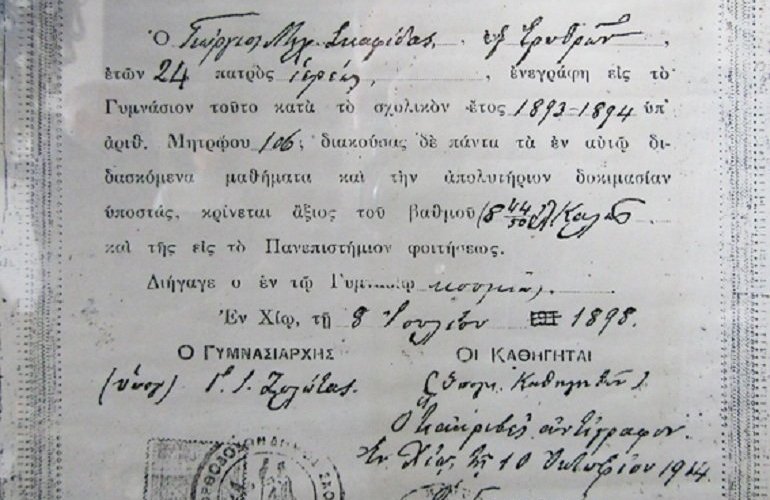 Ὁ Γεώργιος Μιχ. Σκαρίδας, ἐξ Ἐρυθρῶν,
ἐτῶν 24 πατρὸς ἱερέως, ἐνεγράφη εἰς τὸ
Γυμνάσιον τοῦτο κατὰ τὸ σχολικὸν ἔτος 1893-1894 ὑπ'
ἀριθ. Μητρῴου 106; διακούσας δὲ πάντα τὰ ἐν αὐτῷ δι-
δασκόμενα μαθήματα καὶ τὴν ἀπολυτήριον δοκιμασίαν
ὑποστάς, κρίνεται ἄξιος τοῦ βαθμοῦ (8 44/50) Καλῶς
καὶ τῆς εἰς τὸ Πανεπιστήμιον φοιτήσεως.
Διήγαγε ο ἐν τῷ Γυμνασίῳ κοσμίως.
Ἐν Χίῳ, τῇ 8 Ἰουλίου 1898.
Ο ΓΥΜΝΑΣΙΑΡΧΗΣ ΟΙ ΚΑΘΗΓΗΤΑΙ
(ὑπογ) Γ. Ι. Ζολώτας. (Ὑπογρ. Καθηγητῶν)
Ὅτι ἀκριβὲς ἀντίγραφον.
Ἐν Χίῳ, τῇ 10 Ὀκτωβρίου 1914.